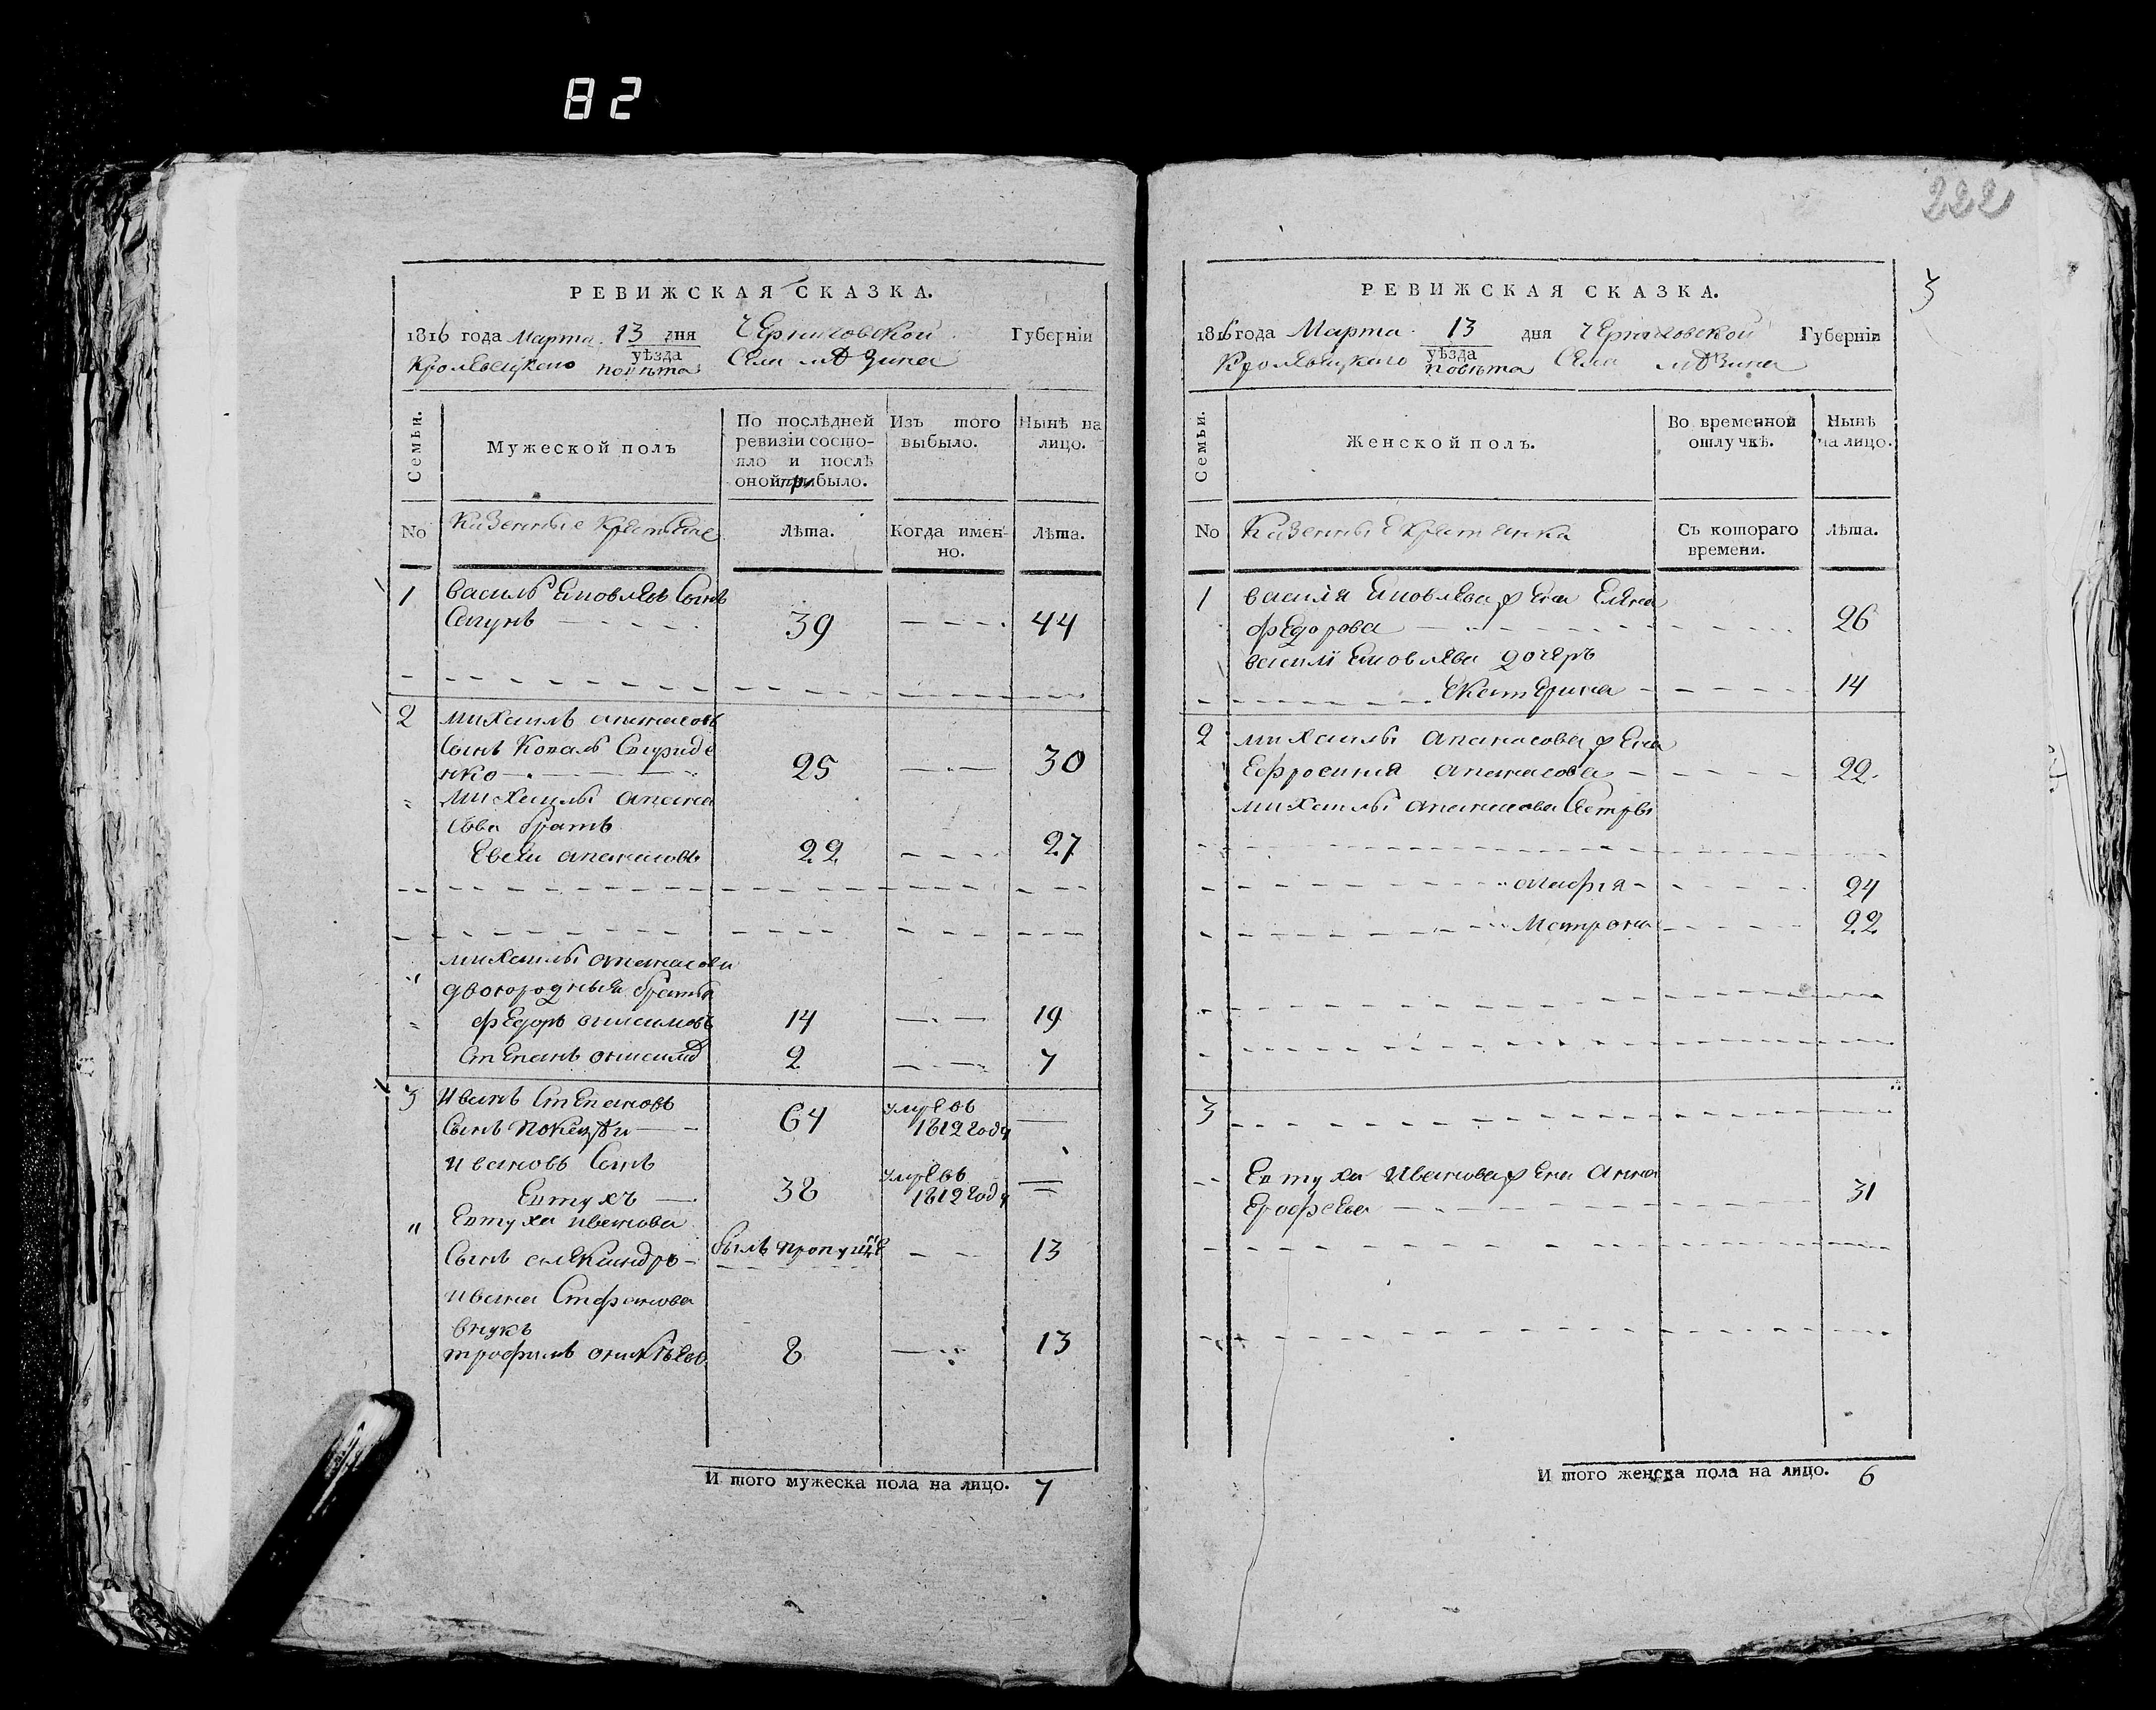 82
222
РЕВИЖСКАЯ СКАЗКА.
1816 года Марта 13 дня Черниговской Губерніи
Кролевецкого уѣзда повѣта Села мѣзина
Семьи.
Мужеской полъ
По послѣдней ревизіи состо-
яло и послѣ
оной прибыло.
Изъ того выбыло.
Ныне на лицо.
No
Казенные Крестьяне
Лѣта.
Когда имен-
но.
Лѣта.
1 василь Яковлевъ Сынъ
Сапунъ 39 44
2 михаилъ апанасовъ
Сынъ Коваль Спириде
нко 25 30
михаилы апана
сова братъ
Евсей апанасовъ 22 27
михаилы апанасова
двоюродныя братья
федоръ 14 19
Степанъ 2 7
3 Иванъ Степановъ
Сынъ 64 умре въ
1812 году
ивановъ Сынъ
Евтухъ 38 умре въ
1812 году
Евтуха иванова
Сынъ александръ былъ пропущѣ 13
ивана Стефанова
внукъ
трофимъ 8 13
И того мужеска пола на лицо. 7
3
РЕВИЖСКАЯ СКАЗКА.
1816 года Марта 13 дня Черниговской Губерніи
Кролевецкаго уѣзда повѣта Села мѣзина
Семьи.
Женской полъ.
Во временной
отлучкѣ.
Нынѣ
на лицо.
No
Казенные Крестянки
Съ котораго
времени.
Лѣта.
1 василя Яковлева жена Елена
федорова 26
василя Яковлева дочеръ
Екатерина 14
2 михаилы апанасова жена
Ефросиния апанасова 22
михаилы апанасова Сестры
агафия 24
Матрона 22
3
Евтуха Иванова жена Анна
Ерофеева 31
И того женска пола на лицо. 6